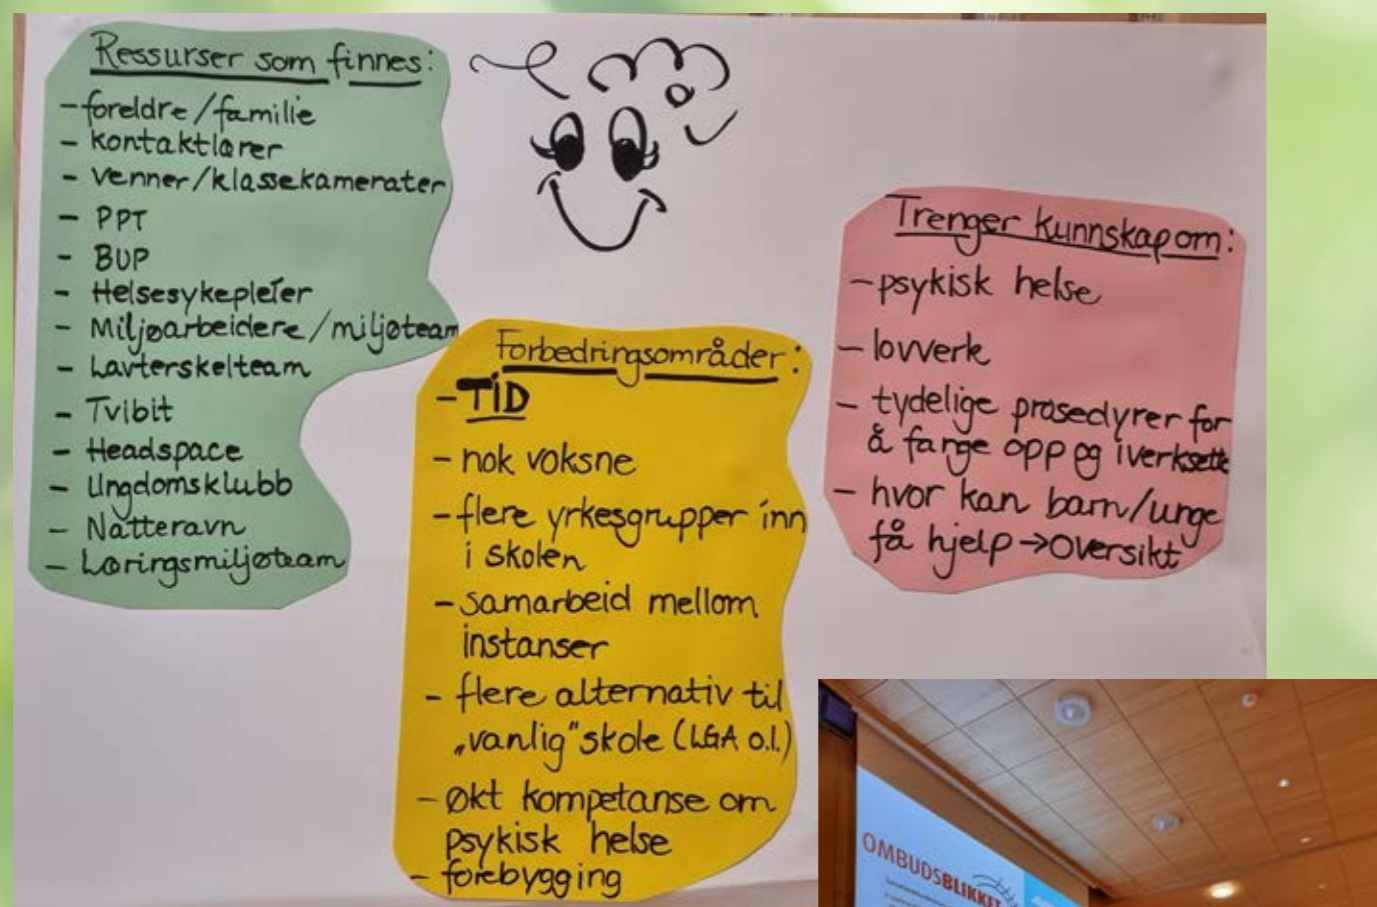 Ressurser som finnes:
- foreldre/familie
- kontaktlærer
- venner/klassekamerater
- PPT
- BUP
- Helsesykepleier
- Miljøarbeidere/miljøteam
- Lavterskelteam
- Tvibit
- Headspace
- Ungdomsklubb
- Natteravn
- Læringsmiljøteam
Forbedringsområder:
- TID
- nok voksne
- flere yrkesgrupper inn
i skolen
- samarbeid mellom
instanser
- flere alternativ til
„vanlig" skole (LGA o.l.)
- økt kompetanse om
psykisk helse
- forebygging
Trenger kunnskap om:
- psykisk helse
- lovverk
- tydelige prosedyrer for
å fange opp og iverksette
- hvor kan barn/unge
få hjelp → oversikt
OMBUDSBLIKKET